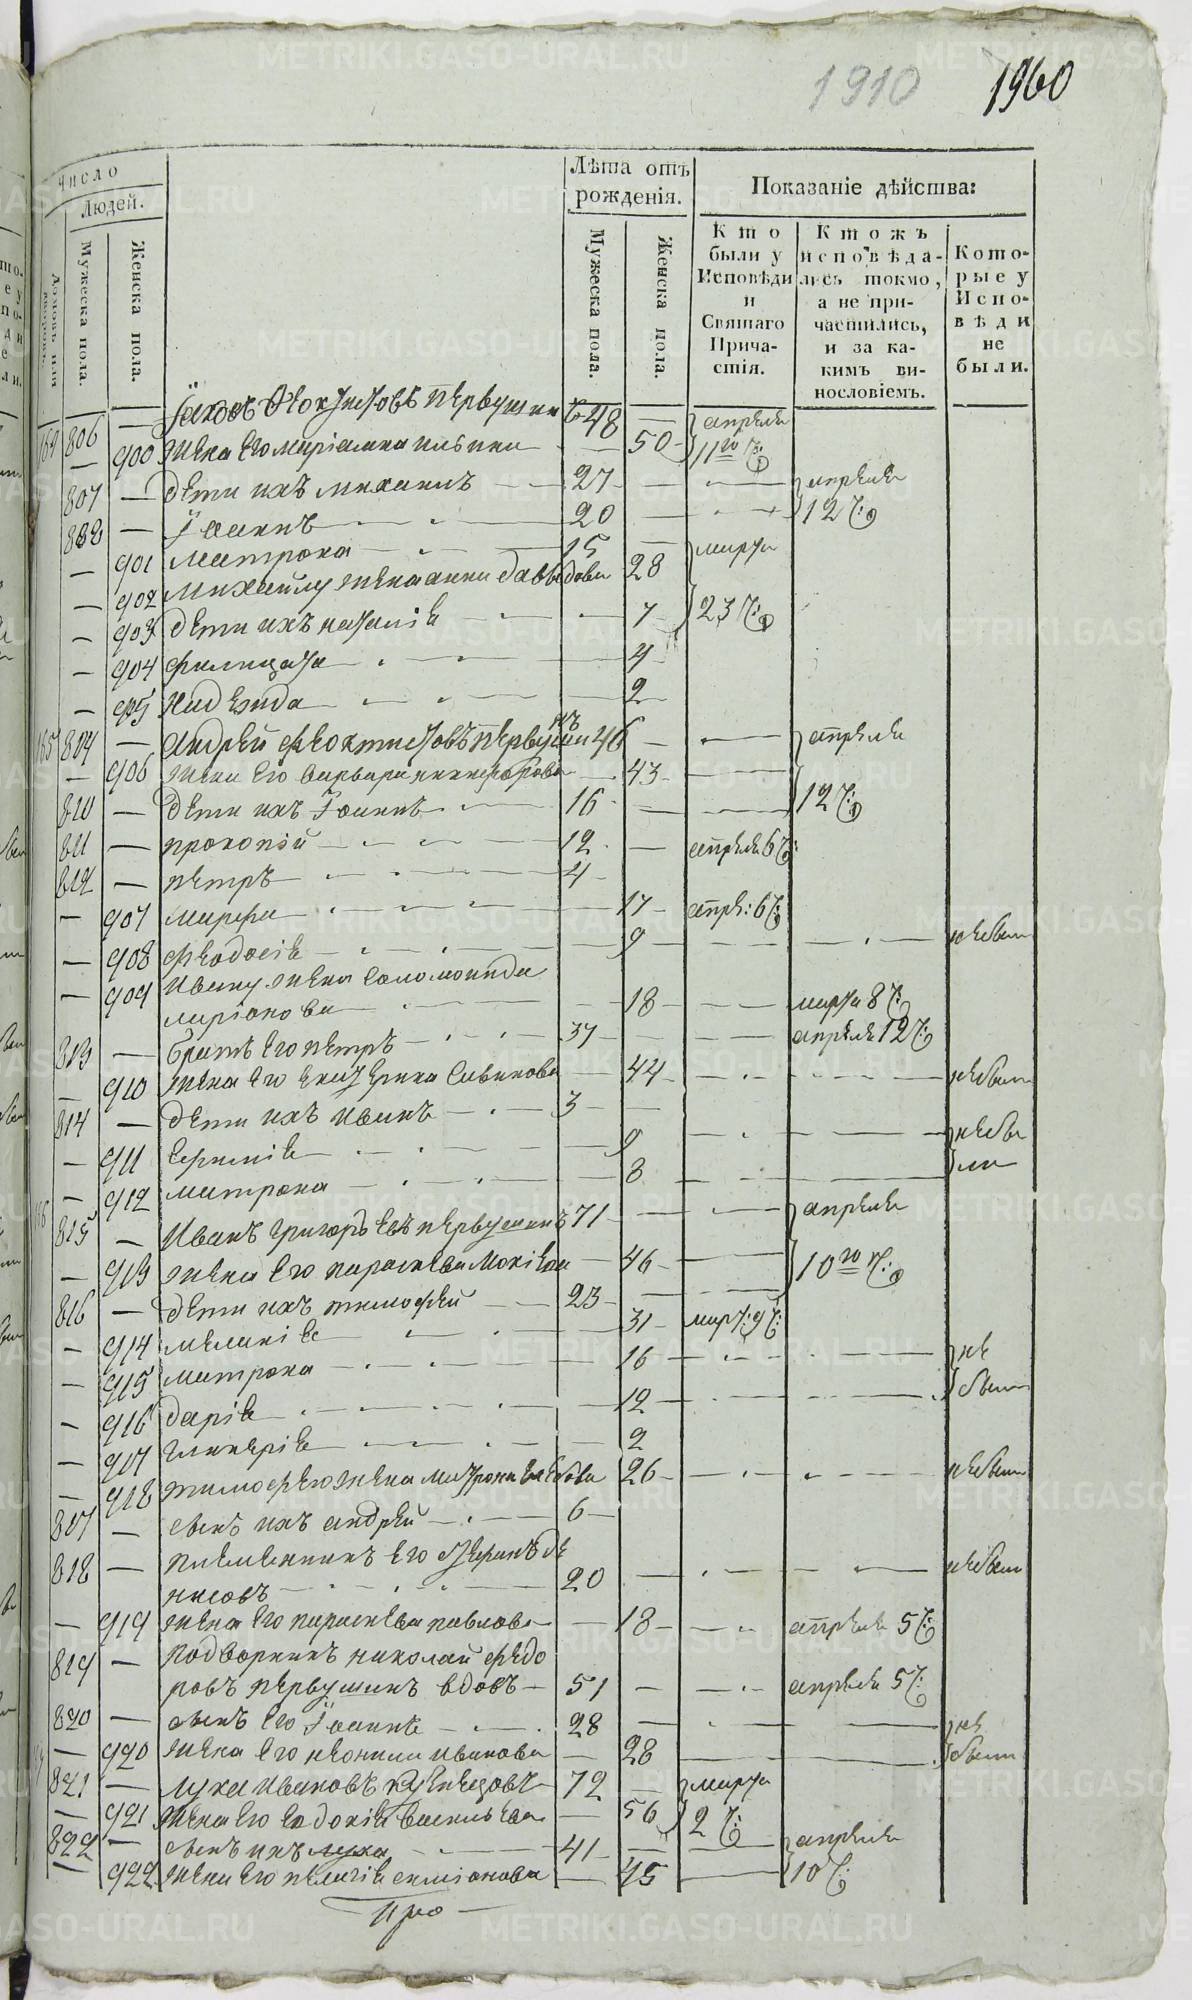 1910 1960
Число
Людей.
Домовъ или дворовъ.
Мужеска пола.
Женска пола.
Лѣта отъ рожденія.
Мужеска пола.
Женска пола.
Показаніе дѣйства:
Кто были у Исповѣди и Святаго Причастія.
Ктожъ исповѣдались токмо, а не причастились, и за какимъ винословіемъ.
Которые у Исповѣди не были.
806 — Феоктистовъ Первушинъ 48 — апреля
— 900 жена его Ильина — 50 11го ч:
807 — дети ихъ Михаилъ 27 — апреля
808 — Іоаннъ 20 — 12 ч:
— 901 Матрона 15 — марта
— 902 Михайлу жена Анна Давыдова 28
— 903 дети ихъ Наталія — 7 23 ч:
— 904 Филицата — 4
— 905 Надежда — 2
165 809 — Андрей Феоктистовъ Первушинъ 46 — апреля
— 906 жена его Варвара Никифорова — 43
810 — дети ихъ Іоаннъ 16 — 12 ч:
811 — Прокопій 12 — апреля 6 ч:
812 — Петръ 4
— 907 Марфа — 17 апре: 6 ч:
— 908 Феодосія — 9 — небыла
— 909 Ивану жена Соломонида
Ларіонова — 18 — марта 8 ч:
813 — братъ его Петръ 37 — апреля 12 ч:
— 910 жена его Екатерина Савинова — 44 — небыла
814 — дети ихъ Иванъ 3 —
— 911 — 9 — небы
— 912 Матрона — 8 — ли
166 815 — Иванъ Григорьевъ Первушинъ 71 — апреля
— 913 жена его Параскева Мокіева — 46 — 10го ч:
816 — дети ихъ Тимофей 23 —
— 914 Меланія — 31 март: 9 ч:
— 915 Матрона — 16 — не
— 916 Дарія — 12 — были
— 917 Гликерія — 2
— 918 Тимофею жена Матрона Глебова 26 — небыла
817 — сынъ ихъ Андрей 6 —
818 — племянникъ его Стефанъ Де
нисовъ 20 — небылъ
— 919 жена его Параскева Павлова — 18 — апреля 5 ч:
819 — Подворникъ Николай Федо
ровъ Первушинъ вдовъ — 51 — апреля 5 ч:
820 — сынъ его Іоаннъ 28 — не
— 920 жена его Неонила Иванова — 28 — были
821 — Лука Ивановъ Кузнецовъ 72 — марта
— 921 жена его Евдокія Васильева — 56 2 ч:
822 — сынъ ихъ Лука 41 — апреля
— 922 жена его Пелагія — 45 — 10 ч:
METRIKI.GASO-URAL.RU